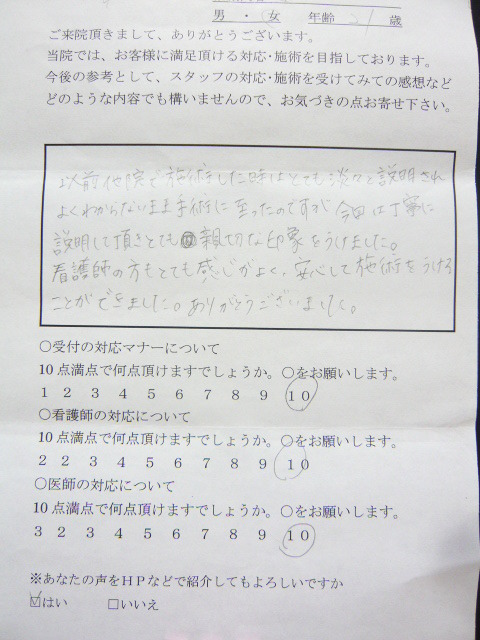 男 ・ 女 年齢 21 歳
ご来院頂きまして、ありがとうございます。
当院では、お客様に満足頂ける対応・施術を目指しております。
今後の参考として、スタッフの対応・施術を受けてみての感想など
どのような内容でも構いませんので、お気づきの点お寄せ下さい。
以前他院で施術した時はとても淡々と説明され
よくわからないまま手術に至ったのですが今回は丁寧に
説明して頂きとても親切な印象をうけました。
看護師の方もとても感じがよく、安心して施術をうける
ことができました。ありがとうございました。
〇受付の対応マナーについて
10点満点で何点頂けますでしょうか。〇をお願いします。
1 2 3 4 5 6 7 8 9 10
〇看護師の対応について
10点満点で何点頂けますでしょうか。〇をお願いします。
2 2 3 4 5 6 7 8 9 10
〇医師の対応について
10点満点で何点頂けますでしょうか。〇をお願いします。
3 2 3 4 5 6 7 8 9 10
※あなたの声をHPなどで紹介してもよろしいですか
☑はい □いいえ